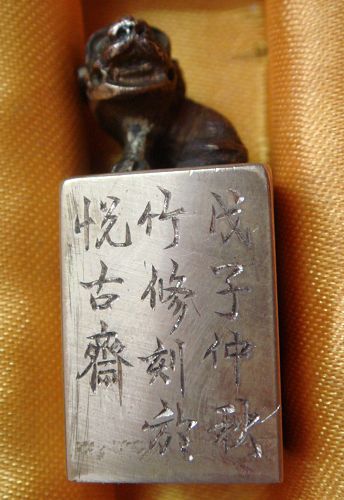 戊子仲秋
竹修刻於
悦古齋